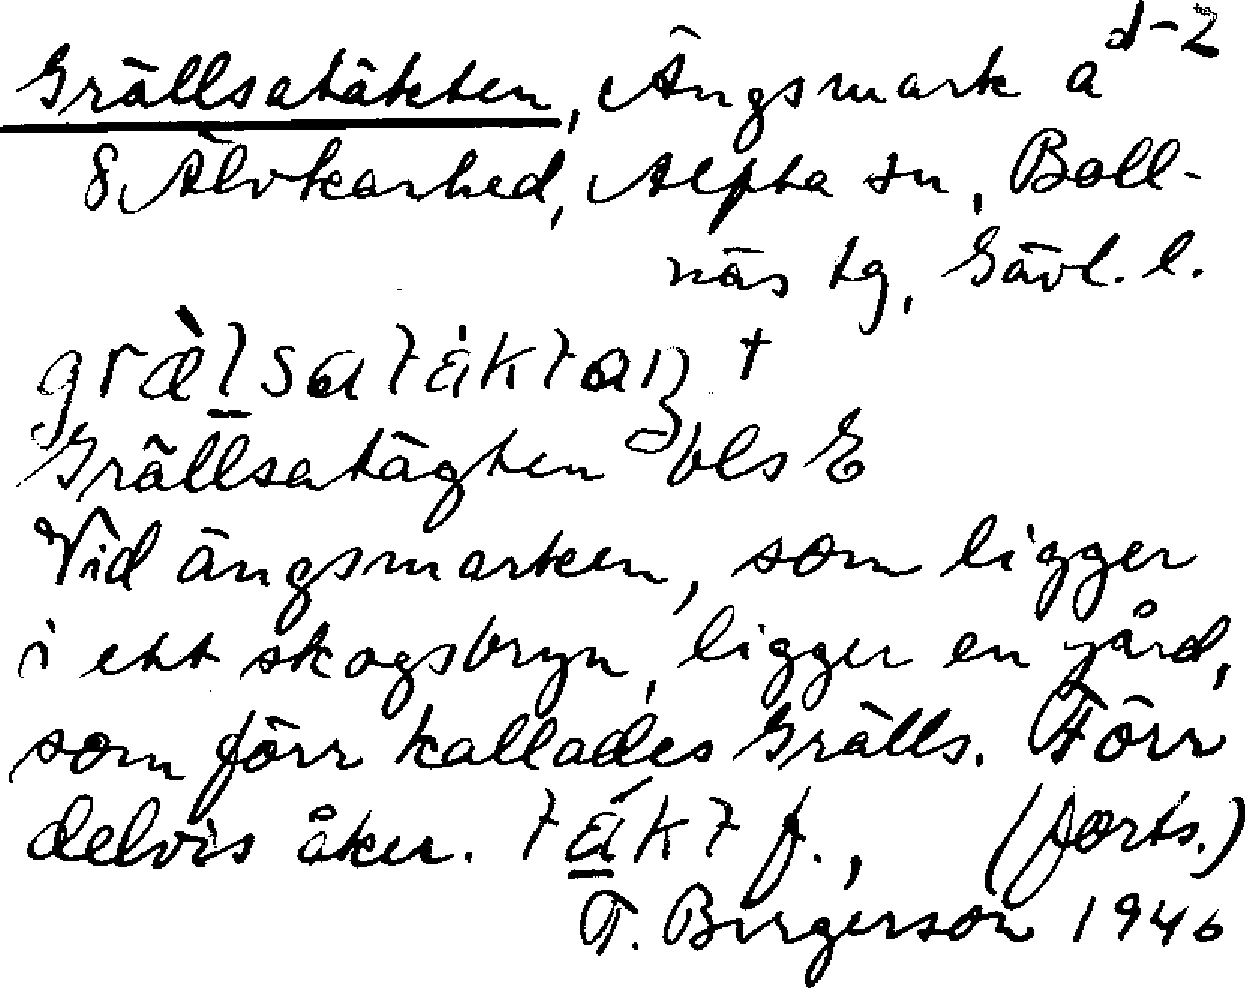 Grällsatäkten, Ängsmark a d-2
8 Älvkarhed, Alfta sn, Boll-
näs tg, Gävl. l.
græ̀lsatäktan †
Grällsatägten bls E
Vid ängsmarken, som ligger
i ett skogsbryn, ligger en gård,
som förr kallades Grälls. Förr
delvis åker. täkt f., (forts.)
T. Birgerson 1946